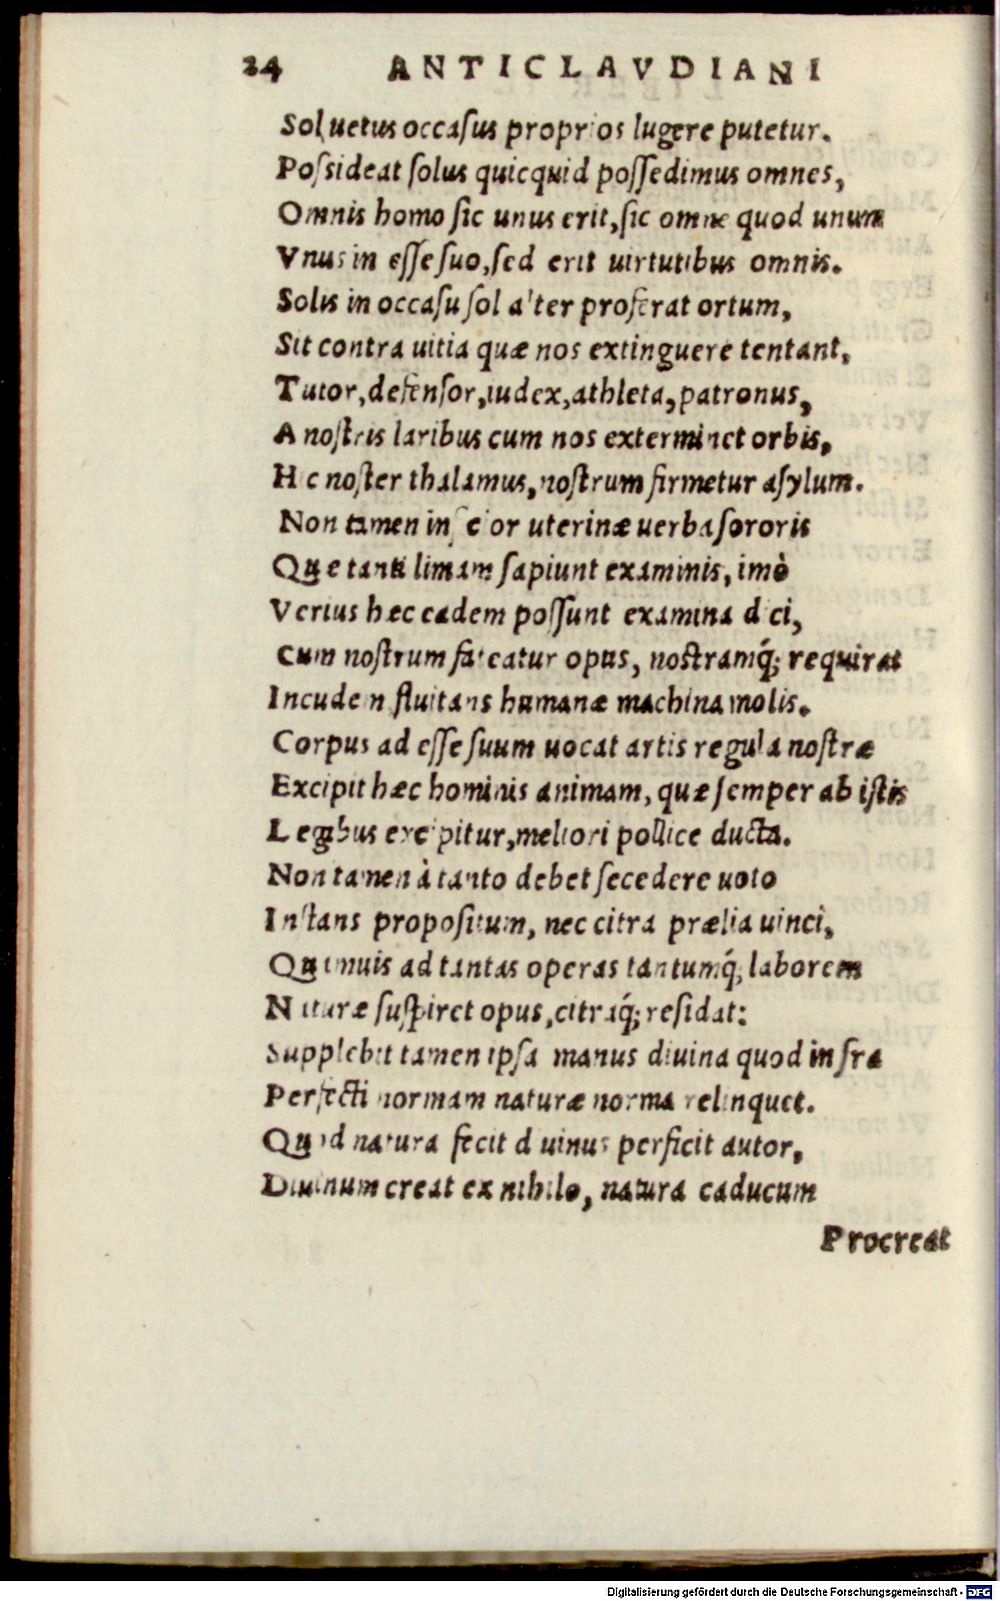 24 ANTICLAVDIANI
Sol uetus occaſus proprios lugere putetur.
Poſsideat ſolus quicquid poſſedimus omnes,
Omnis homo ſic unus erit, ſic omne quod unum
Vnus in eſſe ſuo, ſed erit uirtutibus omnis.
Solis in occaſu ſol alter proferat ortum,
Sit contra uitia quæ nos extinguere tentant,
Tutor, defenſor, iudex, athleta, patronus,
A noſtris laribus cum nos exterminet orbis,
Hic noſter thalamus, noſtrum firmetur aſylum.
Non tamen uterinæ uerba ſororis
Quæ tanti limam ſapiunt examinis, imò
Verius hæc eadem poſſunt examina dici,
Cum noſtrum fateatur opus, noſtramq́; requirat
Incudem fluitans humanæ machina molis.
Corpus ad eſſe ſuum uocat artis regula noſtræ
Excipit hæc hominis animam, quæ ſemper ab iſtis
Legibus excipitur, meliori pollice ducta.
Non tamen à tanto debet ſecedere uoto
Inſtans propoſitum, nec citra prælia uinci,
Quamuis ad tantas operas tantumq́; laborem
Naturæ ſuſpiret opus, citraq́; reſidat:
Supplebit tamen ipſa manus diuina quod infra
Perfecti normam naturæ norma relinquet.
Quod natura fecit diuinus perficit autor,
Diuinum creat ex nihilo, natura caducum
Procreat
Digitalisierung gefördert durch die Deutsche Forschungsgemeinschaft - DFG